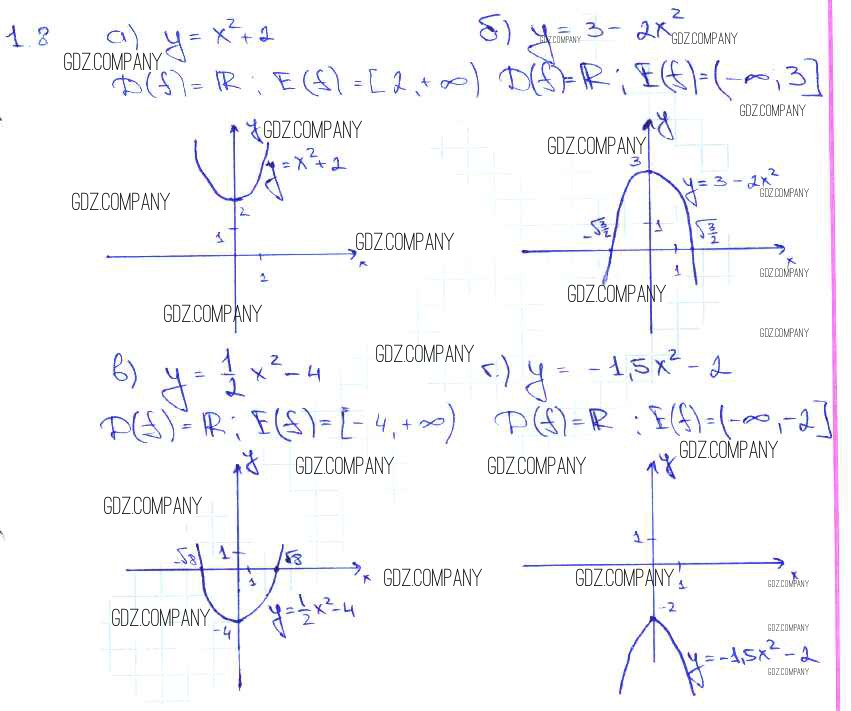 1.8 а) y = x² + 2 б) y = 3 - 2x²
GDZ.COMPANY GDZ.COMPANY GDZ.COMPANY
D(f) = ℝ ; E(f) = [2, +∞) D(f) = ℝ ; E(f) = (-∞; 3]
GDZ.COMPANY
y GDZ.COMPANY y
GDZ.COMPANY
y = x² + 2 3
GDZ.COMPANY y = 3 - 2x²
GDZ.COMPANY
2
1 GDZ.COMPANY -√3/2 1 √3/2
1 x 1 x
GDZ.COMPANY
GDZ.COMPANY
GDZ.COMPANY
GDZ.COMPANY
GDZ.COMPANY
в) y = 1/2 x² - 4 г.) y = -1,5x² - 2
D(f) = ℝ ; E(f) = [-4, +∞) D(f) = ℝ ; E(f) = (-∞, -2]
GDZ.COMPANY
y GDZ.COMPANY GDZ.COMPANY y
GDZ.COMPANY
1
-√8 1 √8
1 x GDZ.COMPANY GDZ.COMPANY 1 x
GDZ.COMPANY
GDZ.COMPANY y = 1/2 x² - 4 -2
-4 GDZ.COMPANY
y = -1,5x² - 2
GDZ.COMPANY